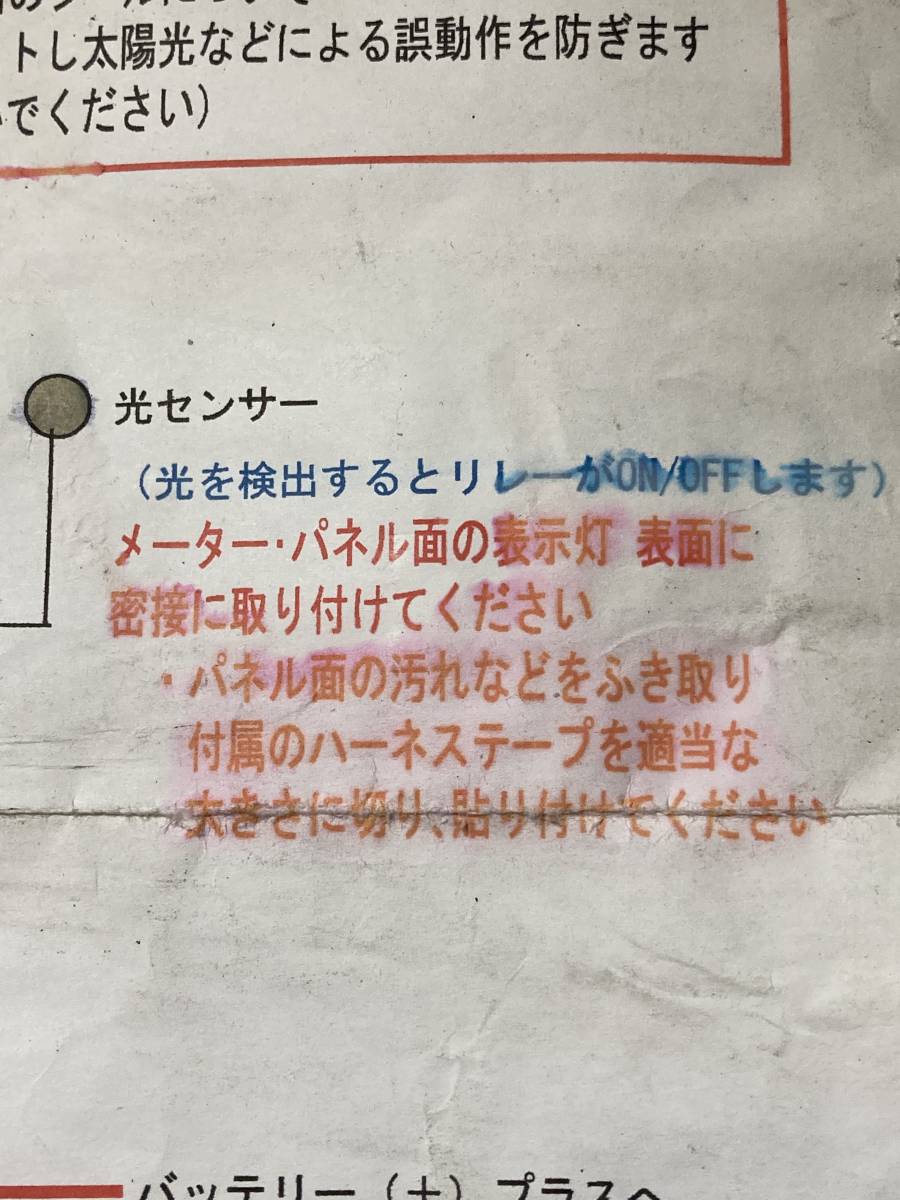 トし太陽光などによる誤動作を防ぎます
でください）
光センサー
（光を検出するとリレーがON/OFFします）
メーター・パネル面の表示灯 表面に
密接に取り付けてください
・パネル面の汚れなどをふき取り
付属のハーネステープを適当な
大きさに切り、貼り付けてください
バッテリー（＋）プラスへ